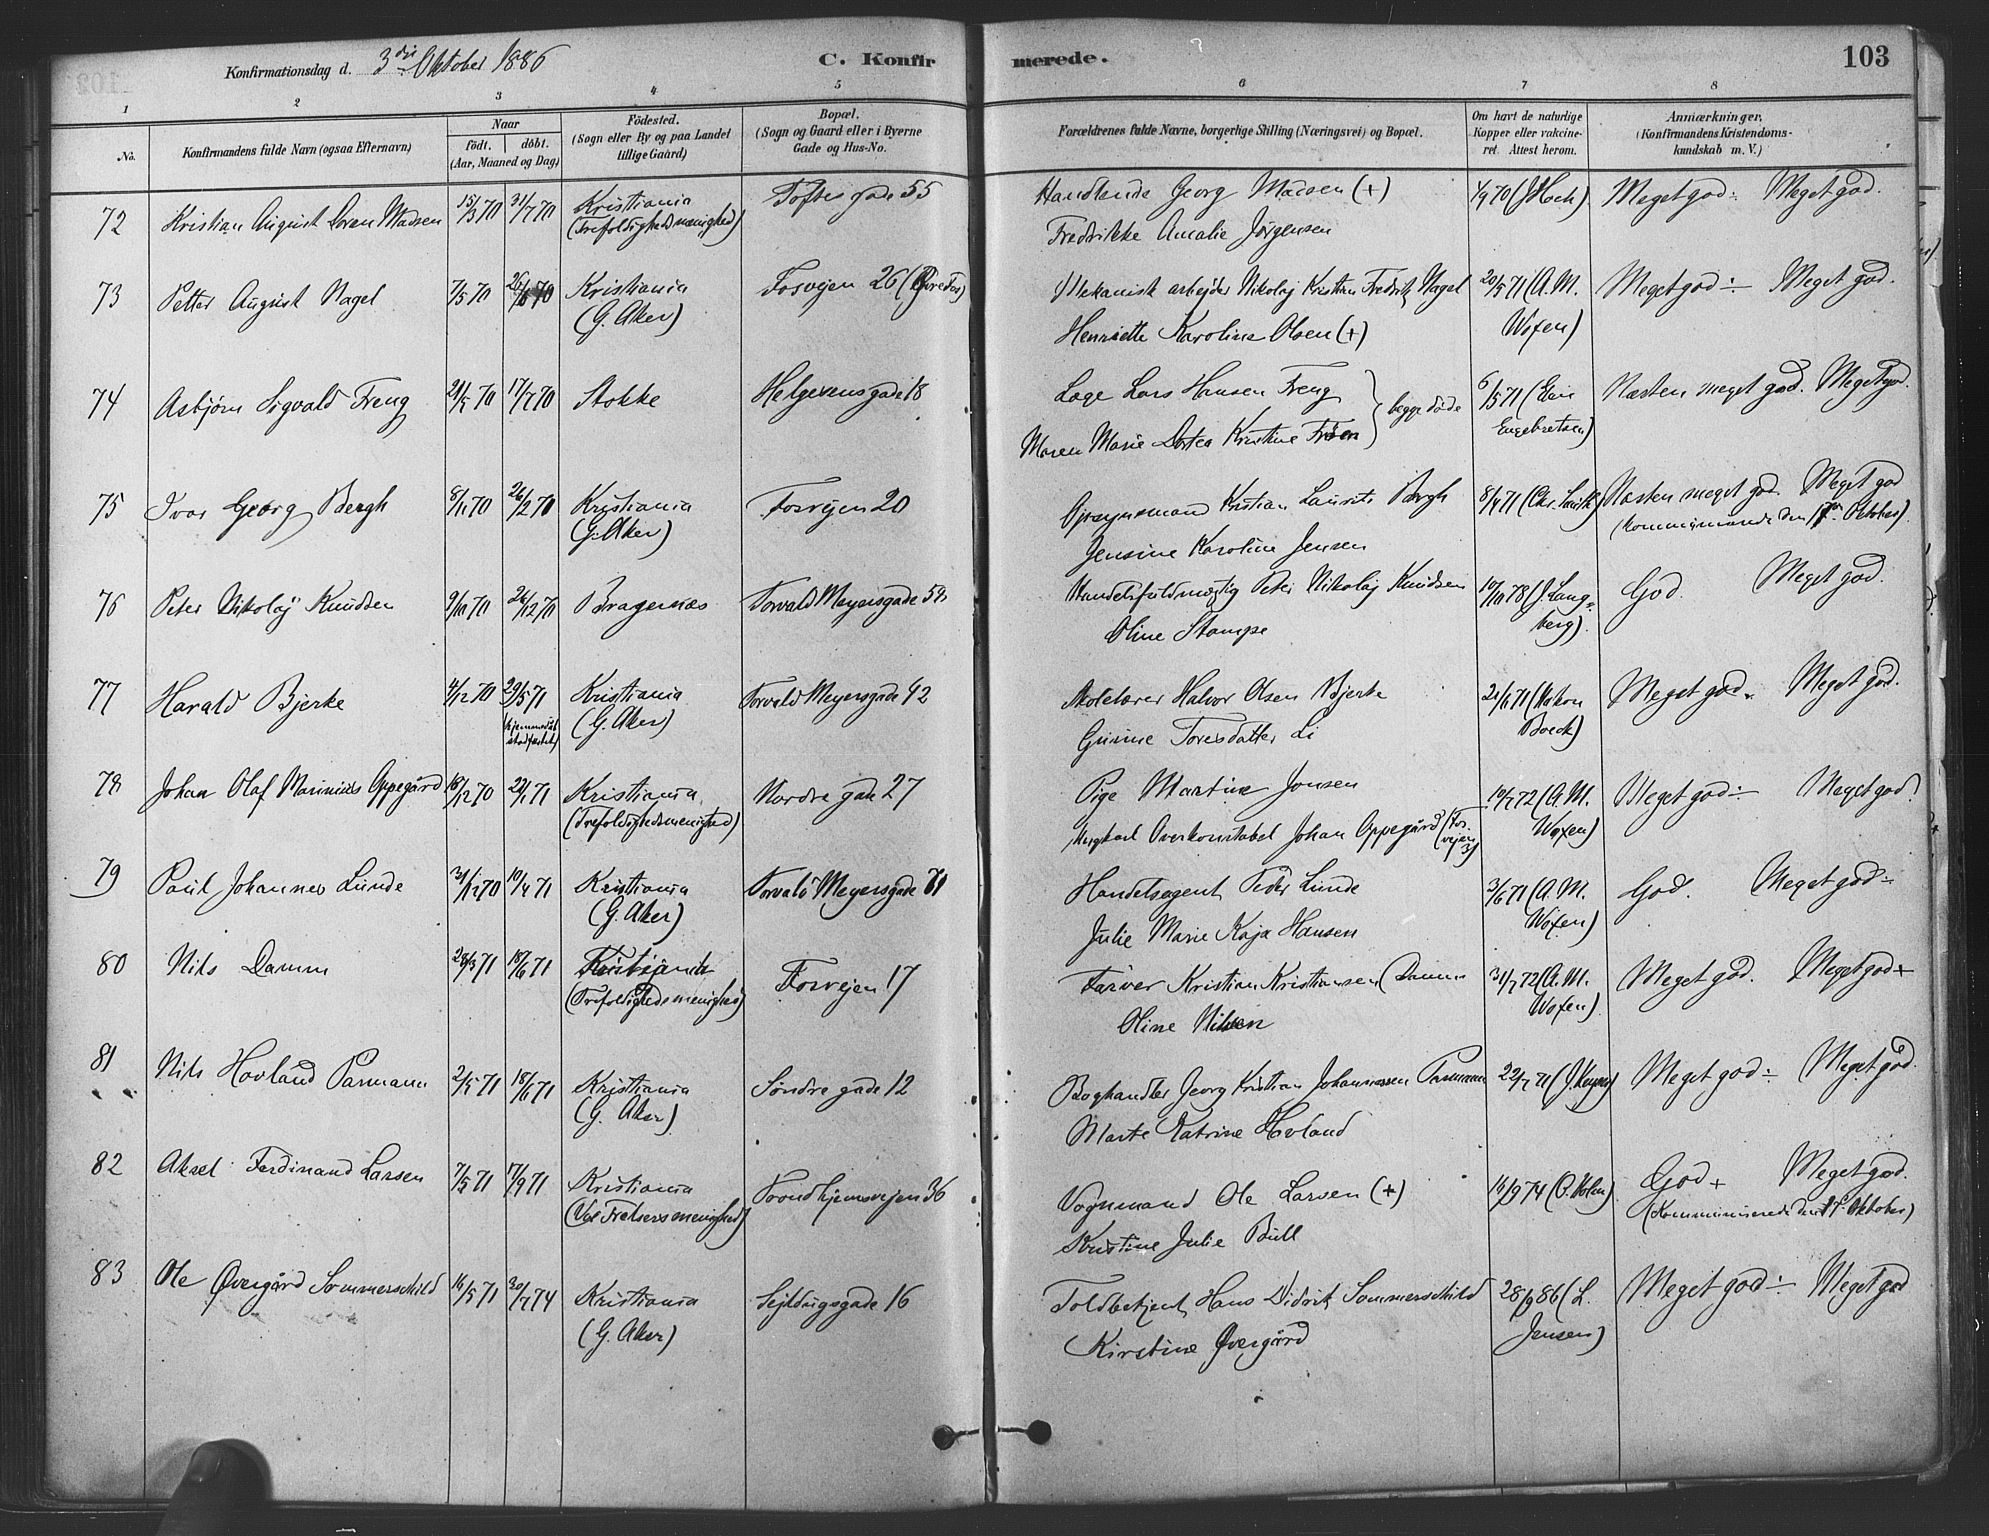 Konfirmationsdag d. 3die Oktober 1886
C. Konfirmerede.
103
1 2 3 4 5 6 7 8
No.
Konfirmandens fulde Navn (ogsaa Efternavn)
Naar
födt. döbt.
(Aar, Maaned og Dag)
Födested.
(Sogn eller By og paa Landet
tillige Gaard)
Bopæl.
(Sogn og Gaard eller i Byerne
Gade og Hus-No.
Forældrenes fulde Navne, borgerlige Stilling (Næringsvei) og Bopæl.
Om havt de naturlige
Kopper eller vakcine-
ret. Attest herom.
Anmærkninger,
(Konfirmandens Kristendoms-
kundskab m. V.)
72 Kristian August Loren Madsen 15/3 70 31/7 70 Kristiania Toftes gade 55 Handlende Georg Madsen (+) 1/9 70 (J Hoch) Meget god ÷ Meget god.
(Trefoldighedsmenighed) Fredrikke Amalie Jörgensen
73 Petter August Nagel 7/5 70 26/6 70 Kristiania Fosvejen 26 (Björe Fos) Mekanisk arbejder Nikolaj Kristian Fredrik Nagel 20/5 71 (A. M. Meget god ÷ Meget god.
(G. Aker) Henriette Karoline Olsen (+) Woxen)
74 Asbjörn Sigvald Freng 21/5 70 17/7 70 Stokke Helgesensgade 18 Læge Lars Hansen Freng 6/5 71 (Næsten meget god. Meget god.
Maren Marie Dortea Kristine begge döde Engebretsen)
75 Ivar Georg Bergh 8/11 70 26/12 70 Kristiania Fosvejen 20 Opsynsmand Kristian Laurits Bergh 8/4 71 (Chr. Smith) Næsten meget god. Meget god
(G. Aker) Jensine Karoline Jensen (kommunicerede den 17de Oktober).
76 Peter Nikolaj Knudsen 9/10 70 26/12 70 Bragernæs Torvald Meyersgade 59 Handelsfuldmægtig Peter Nikolaj Knudsen 19/10 78 (J. Lang- God. Meget god.
Oline Stampe berg).
77 Harald Bjerke 4/12 70 29/5 71 Kristiania Torvald Meyersgade 42 Skolelærer Halvor Olsen Bjerke 21/6 71 (Hakon Meget god. Meget god.
(hjemmedöbt
stadfæstet) (G. Aker) Gunine Toresdatter Li Boeck)
78 Johan Olaf Marinius Oppegård 18/12 70 22/1 71 Kristiania Nordre gade 27 Pige Martine Jonsen 19/7 72 (A. M. Meget god ÷ Meget god.
(Trefoldighedsmenighed) Ungkarl Overkonstabel Johan Oppegård (Fos- Woxen)
vejen 3)
79 Paul Johannes Lunde 31/12 70 10/4 71 Kristiania Torvald Meyersgade 71 Handelsagent Peder Lunde 3/6 71 (A. M. God. Meget god ÷
(G. Aker) Julie Marie Kaja Hansen Woxen)
80 Nils Damm 28/3 71 18/6 71 Kristiania Fosvejen 17 Farver Kristian Kristiansen Damm 31/7 72 (A. M. Meget god. Meget god +
(Trefoldighedsmenighed) Oline Nilsen Woxen).
81 Nils Hovland Parmann 2/5 71 18/6 71 Kristiania Söndre gade 12 Boghandler Georg Kristian Johannessen Parmann 22/7 71 (J. Keyser) Meget god ÷ Meget god.
(G. Aker) Marte Katrine Hovland
82 Aksel Ferdinand Larsen 7/5 71 17/9 71 Kristiania Trondhjemsvejen 36 Vognmand Ole Larsen (+) 16/9 74 (O. Holm) God + Meget god.
(Vor Frelsers menighed) Kristine Julie Bull (Kommunicerede den 17de Oktober)
83 Ole Övergård Sommerschild 16/5 71 30/7 74 Kristiania Sejldugsgade 16 Toldbetjent Hans Didrik Sommerschild 28/9 86 (L. Meget god ÷ Meget god
(G. Aker) Kirstine Övergård Jensen)